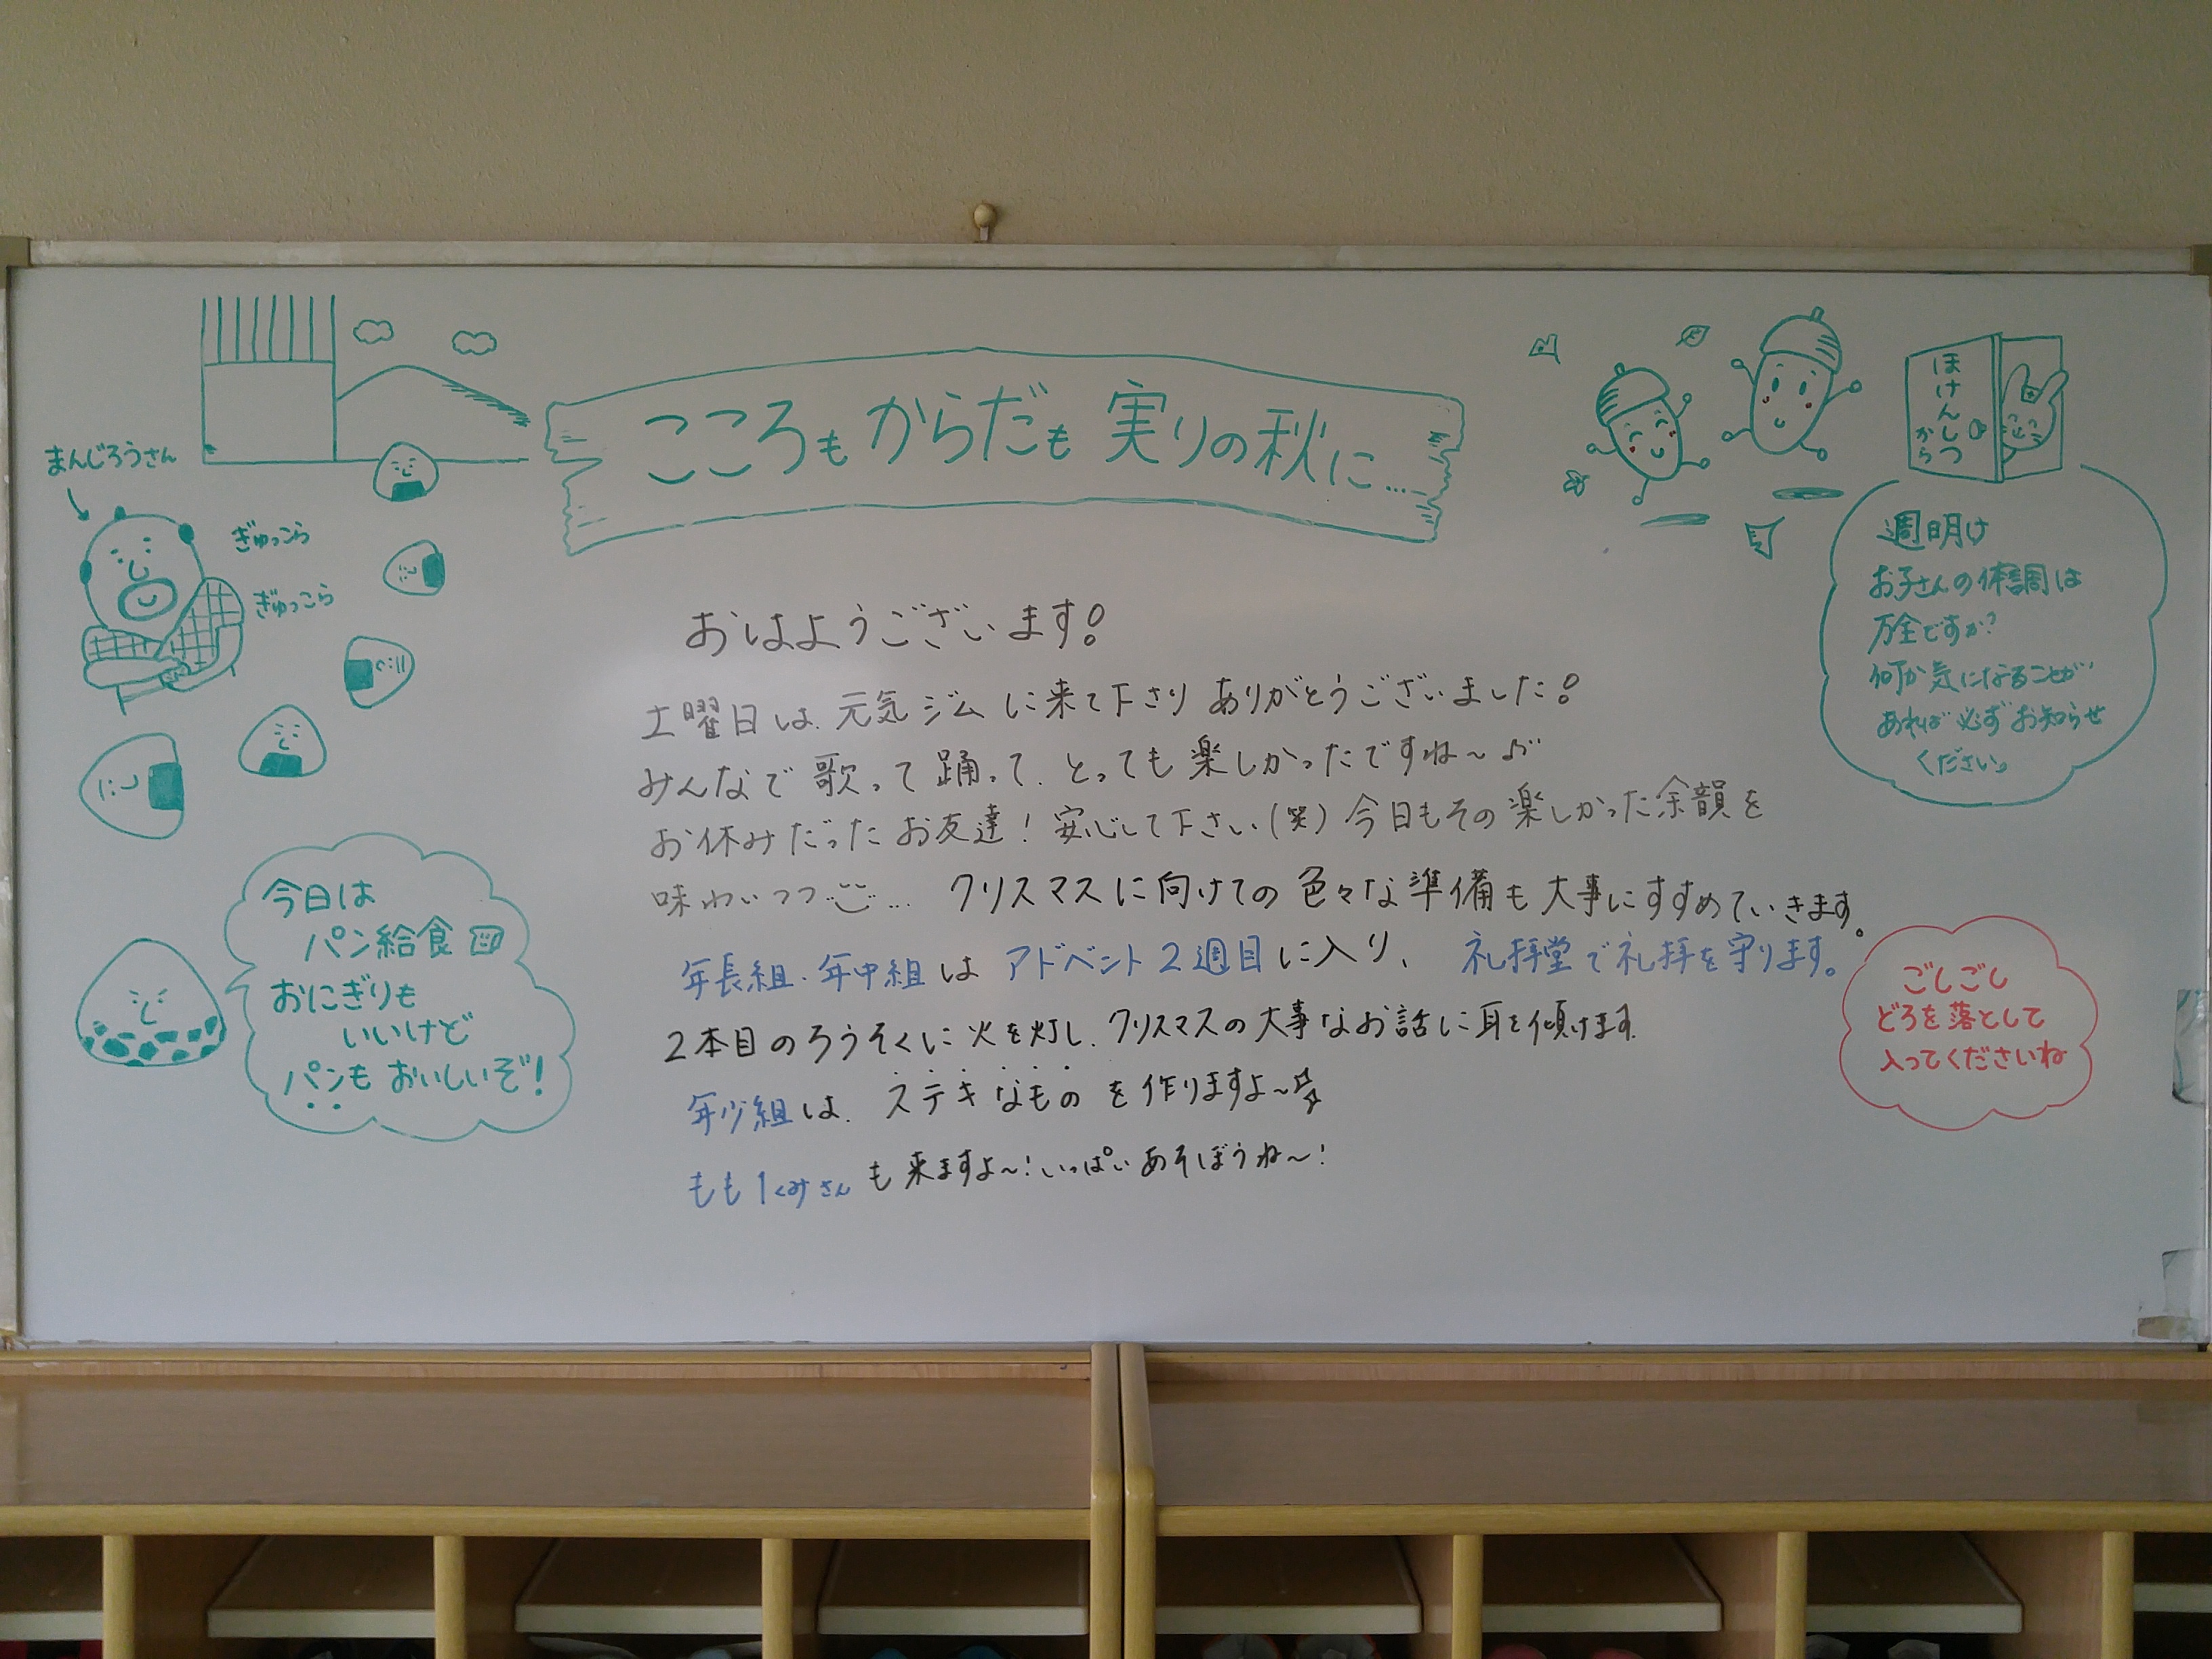 こころもからだも実りの秋に…
まんじろうさん
ぎゅっこら
ぎゅっこら
ほけんしつ
から
週明け
お子さんの体調は
万全ですか?
何か気になることが
あれば必ずお知らせ
ください。
おはようございます!
土曜日は、元気ジムに来て下さりありがとうございました!
みんなで歌って踊って、とっても楽しかったですね〜♪
お休みだったお友達!安心して下さい(笑)今日もその楽しかった余韻を
味わいつつ… クリスマスに向けての色々な準備も大事にすすめていきます。
年長組・年中組はアドベント2週目に入り、礼拝堂で礼拝を守ります。
2本目のろうそくに火を灯し、クリスマスの大事なお話に耳を傾けます。
年少組は、ステキなものを作りますよ〜
もも1くみさんも来ますよ〜!いっぱいあそぼうね〜!
今日は
パン給食
おにぎりも
いいけど
パンもおいしいぞ!
ごしごし
どろを落として
入ってくださいね